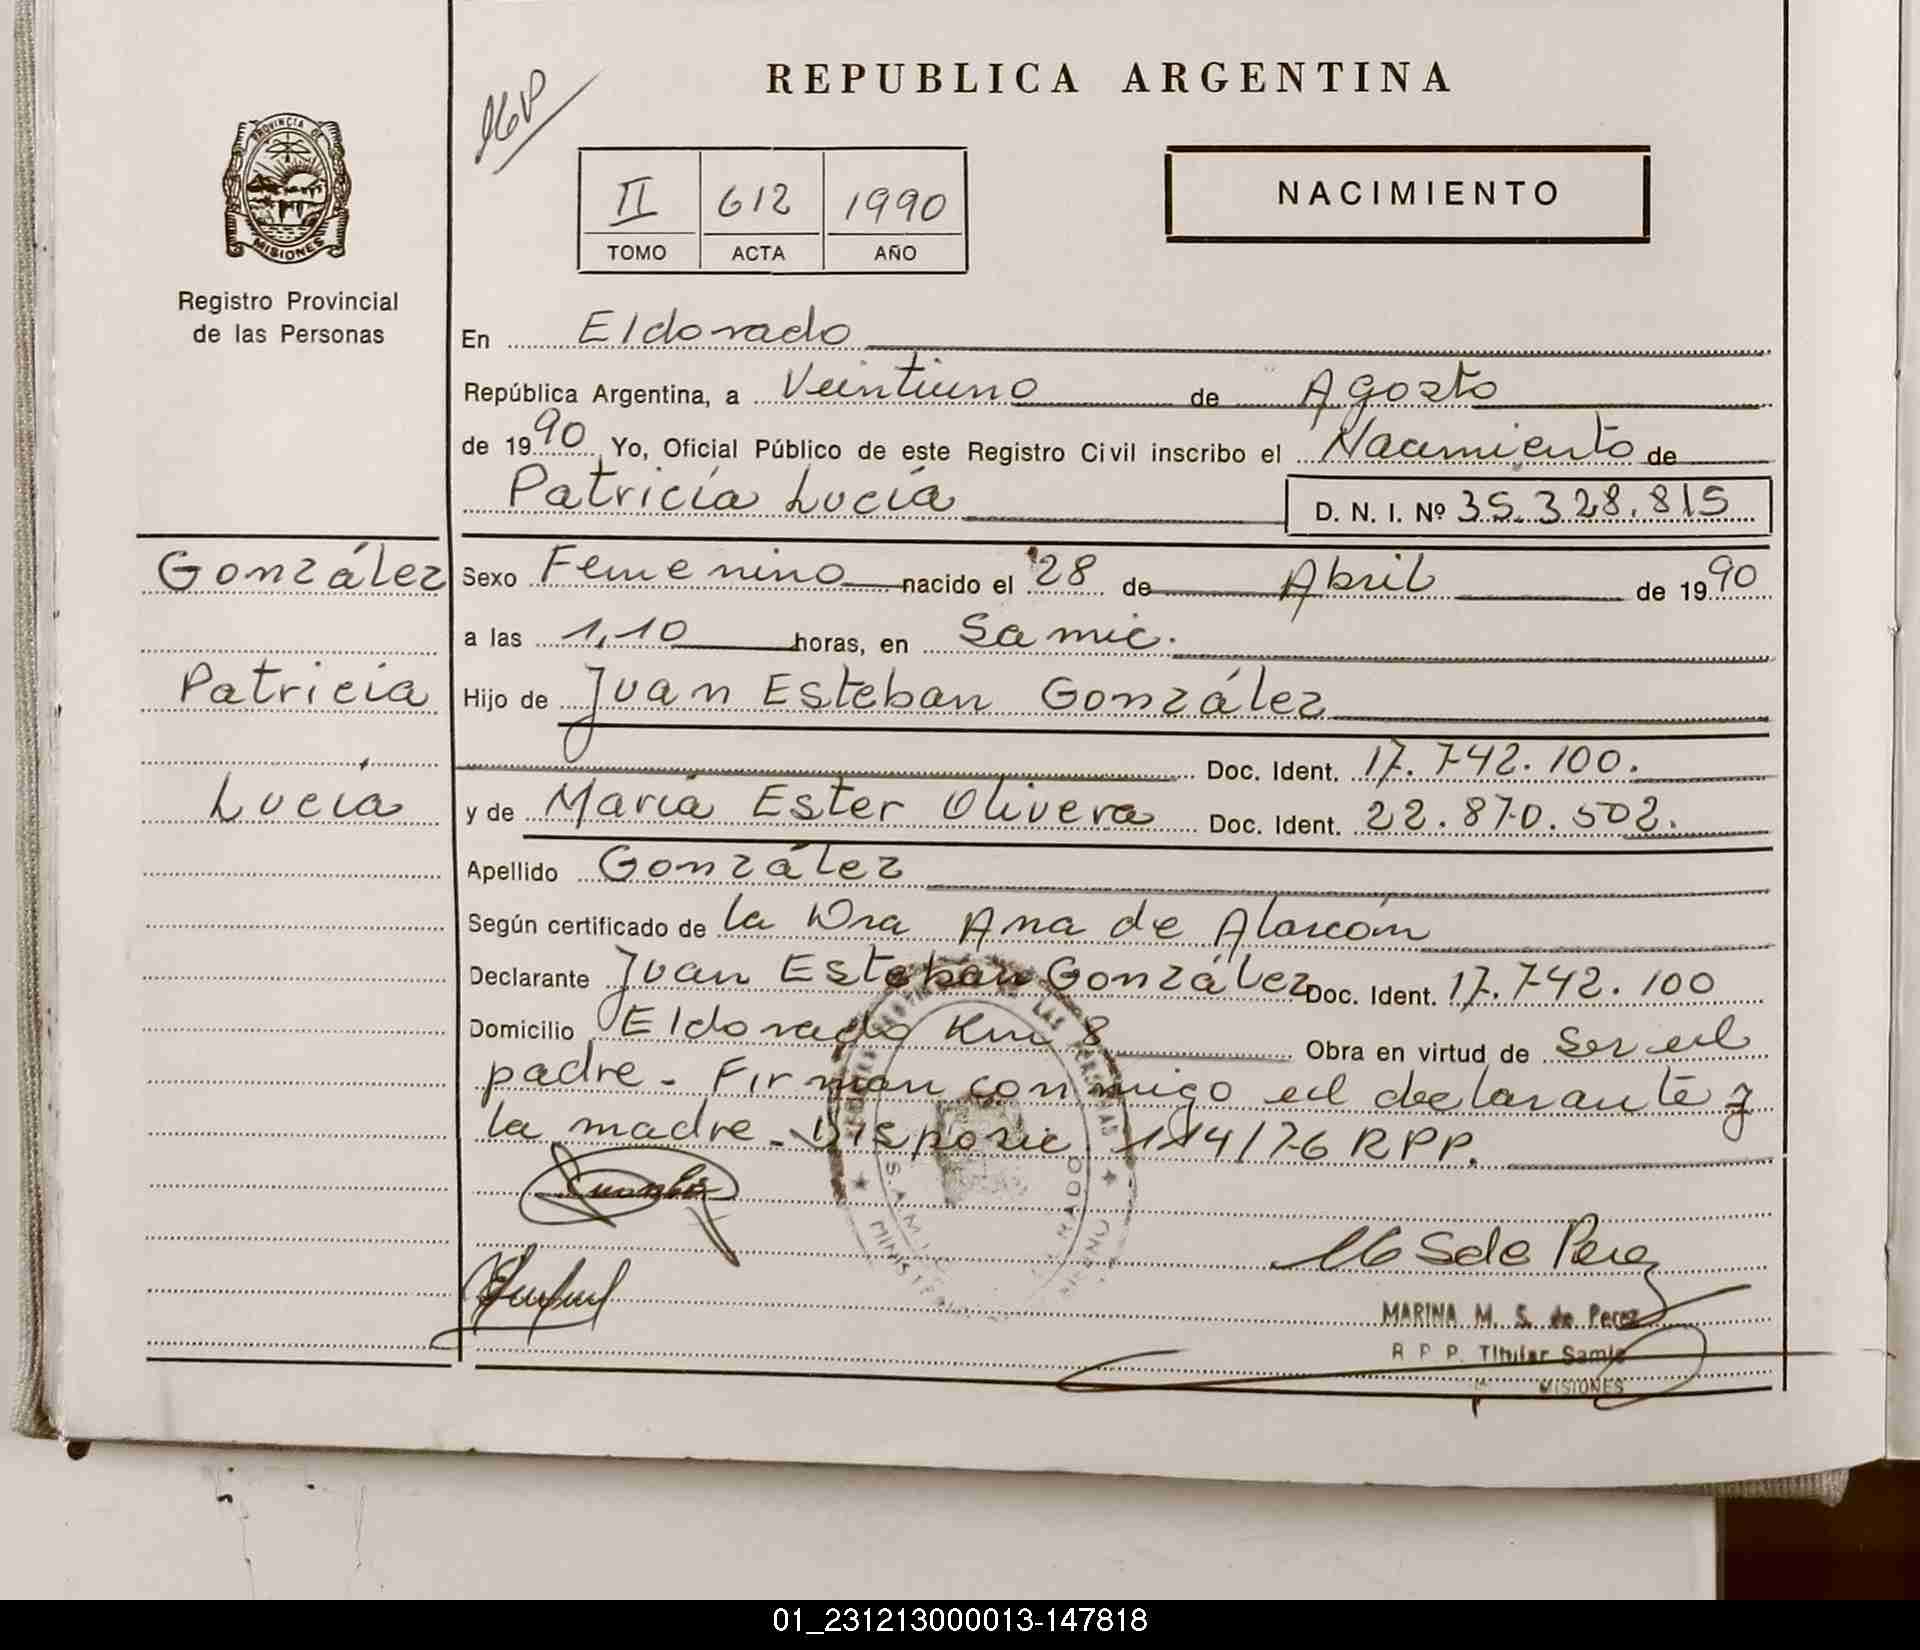 REPUBLICA ARGENTINA
PROVINCIA DE
MISIONES
Registro Provincial
de las Personas
II 612 1990
TOMO ACTA AÑO
NACIMIENTO
En Eldorado
República Argentina, a Veintiuno de Agosto
de 1990 Yo, Oficial Público de este Registro Civil inscribo el Nacimiento de
Patricia Lucía D. N. I. Nº 35.328.815
González
Patricia
Lucía
Sexo Femenino nacido el 28 de Abril de 1990
a las 1,10 horas, en Samic.
Hijo de Juan Esteban González
Doc. Ident. 17.742.100.
y de María Ester Olivera Doc. Ident. 22.870.502.
Apellido González
Según certificado de la Dra Ana de Alarcón
Declarante Juan Esteban González Doc. Ident. 17.742.100
Domicilio Eldorado Km 8 Obra en virtud de ser el
padre - Firman conmigo el declarante y
la madre - Disposic. 114/76 RPP.
MS de Perez
MARINA M. S. de Perez
R P P. Titular Samic
MISIONES
01_231213000013-147818